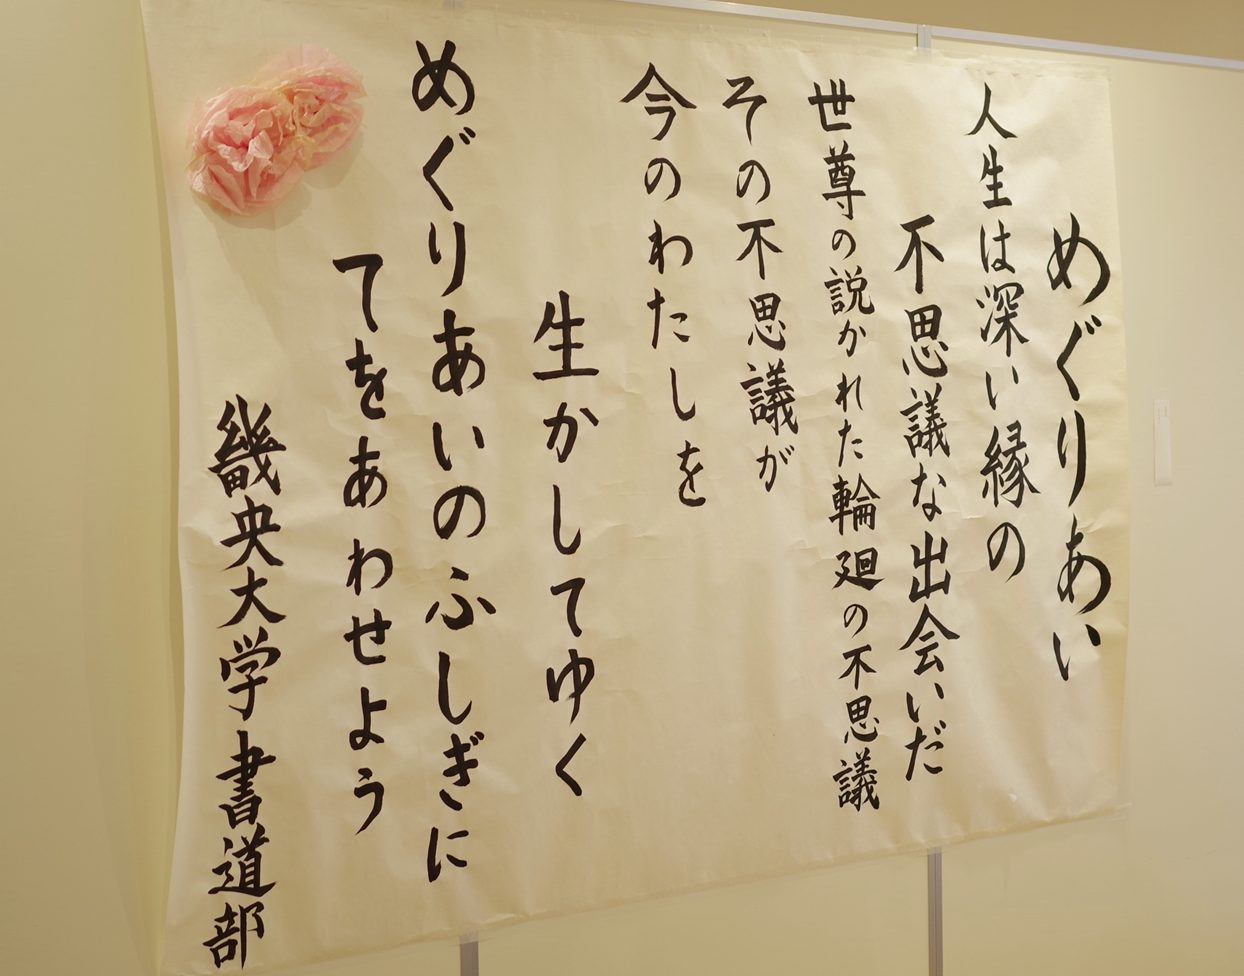 めぐりあい
人生は深い縁の
不思議な出会いだ
世尊の説かれた輪廻の不思議
その不思議が
今のわたしを
生かしてゆく
めぐりあいのふしぎに
てをあわせよう
畿央大学書道部